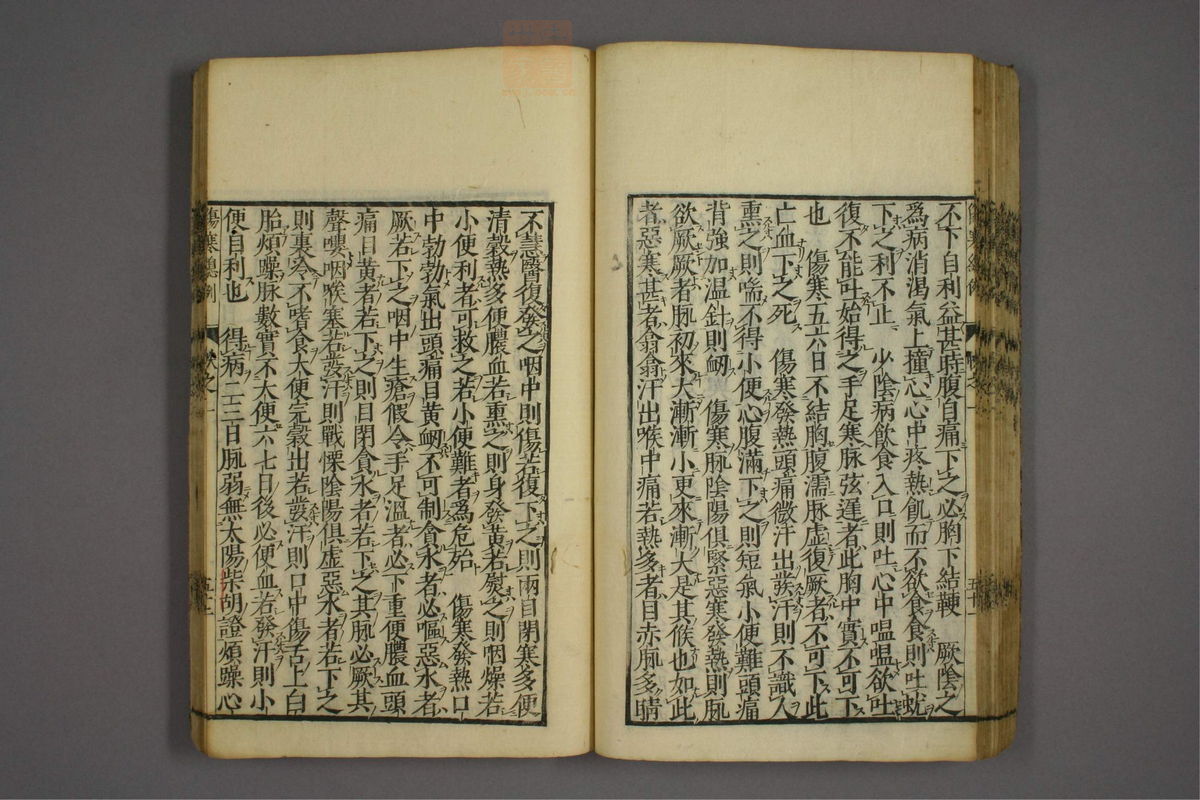 不下自利益甚時腹自痛下之必胸下結鞕　厥陰之
爲病消渴氣上撞心心中疼熱飢而不欲食食則吐蚘
下之利不止　少陰病飲食入口則吐心中嗢嗢欲吐
復不能吐始得之手足寒脉弦遲者此胸中實不可下
也　傷寒五六日不結胸腹濡脉虛復厥者不可下此
亡血下之死　傷寒發熱頭痛微汗出發汗則不識人
熏之則喘不得小便心腹滿下之則短氣小便難頭痛
背強加温針則衂　傷寒脉陰陽俱緊惡寒發熱則脉
欲厥厥者脉初來大漸漸小更來漸大是其候也如此
者惡寒甚者翕翕汗出喉中痛若熱多者目赤脉多睛
不慧醫復發之咽中則傷若復下之則兩目閉寒多便
清穀熱多便膿血若熏之則身發黃若熨之則咽燥若
小便利者可救之若小便難者爲危殆　傷寒發熱口
中勃勃氣出頭痛目黃衂不可制貪水者必嘔惡水者
厥若下之咽中生瘡假令手足溫者必下重便膿血頭
痛目黃者若下之則目閉貪水者若下之其脉必厥其
聲嚶咽喉塞若發汗則戰慄陰陽俱虛惡水者若下之
則裏冷不嗜食大便完穀出若發汗則口中傷舌上白
胎煩躁脉數實不大便六七日後必便血若發汗則小
便自利也　得病二三日脉弱無太陽柴胡證煩躁心
傷寒總例